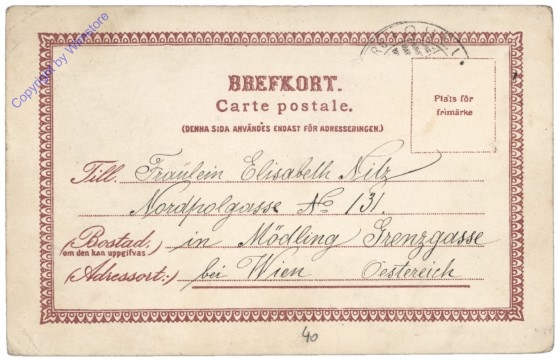 Copyright by Wanstore
BREFKORT.
Carte postale.
(DENNA SIDA ANVÄNDES ENDAST FÖR ADRESSERINGEN.)
Plats för
frimärke
Till. Fräulein Elisabeth Nitz
Nordpolgasse No 131
(Bostad,
om den kan uppgifvas
in Mödling Grenzgasse
(Adressort:) bei Wien Oestereich
40